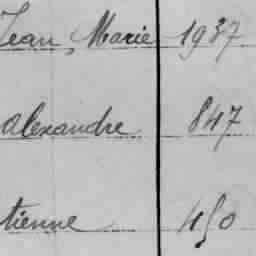 Jean, Marie 1937
alexandre 847
tienne 450